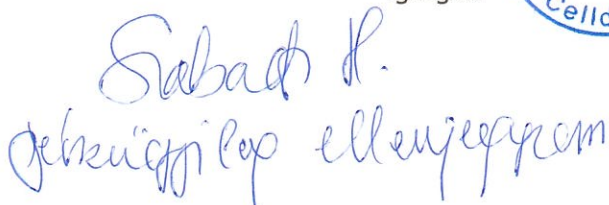 Cello
Szabad H.
pénzügyileg ellenjegyzem